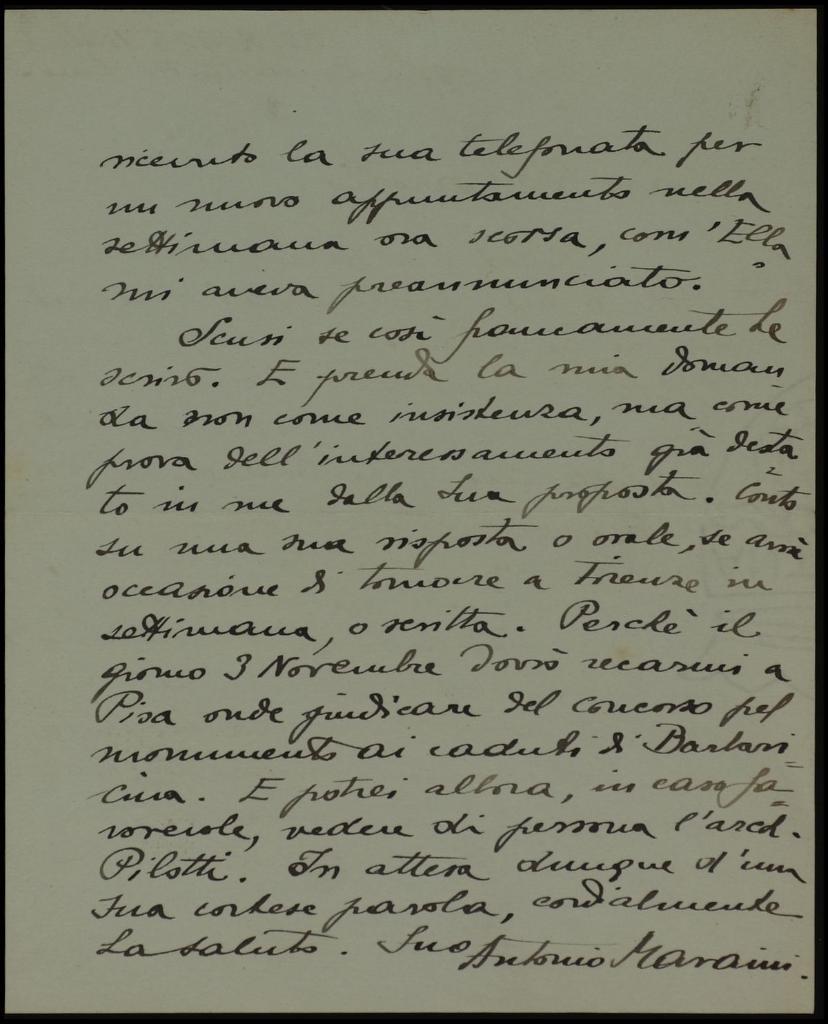 ricevuto la sua telefonata per
un nuovo appuntamento nella
settimana ora scorsa, com'Ella
mi aveva preannunciato.
Scusi se così francamente Le
scrivo. E prenda la mia doman
da non come insistenza, ma come
prova dell'interessamento già desta
to in me dalla Sua proposta. Conto
su una sua risposta o orale, se avrà
occasione di tornare a Firenze in
settimana, o scritta. Perchè il
giorno 3 Novembre dovrò recarmi a
Pisa onde giudicare del concorso pel
monumento ai caduti di Barbari=
cina. E potrei allora, in caso fa=
vorevole, vedere di persona l'arch.
Pilotti. In attesa dunque d'una
Sua cortese parola, cordialmente
La saluto. Suo Antonio Maraini.